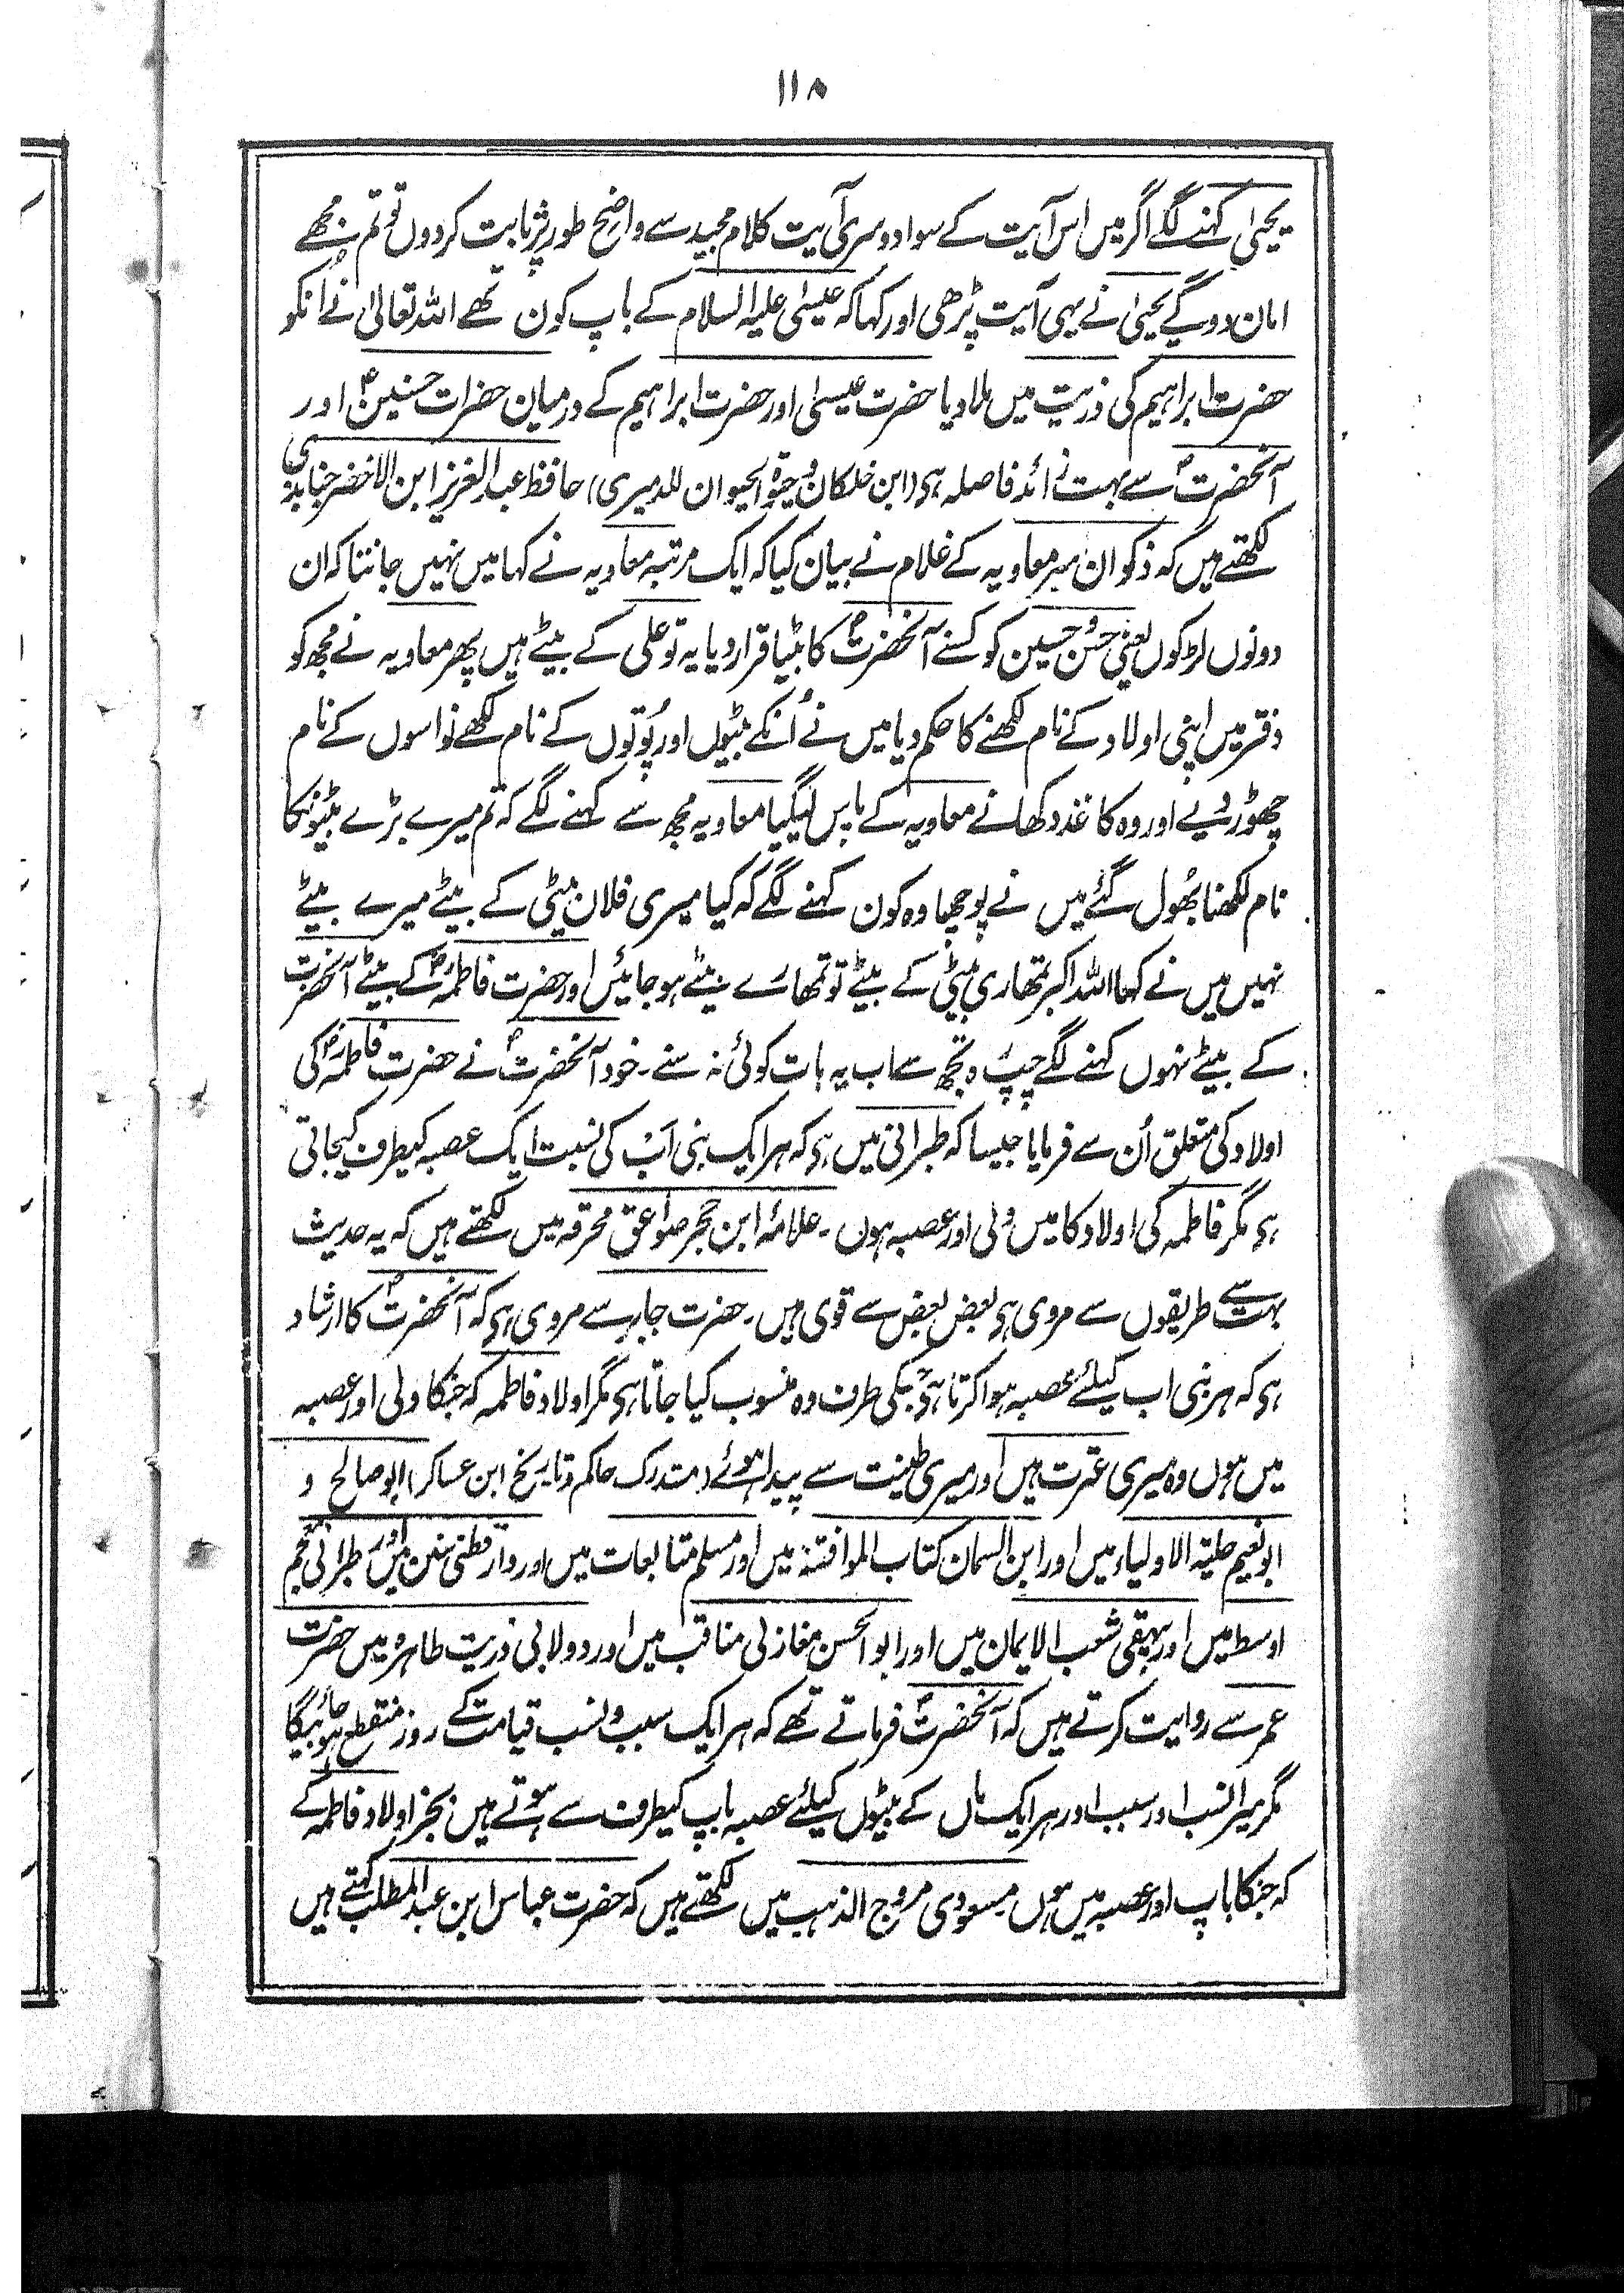 ۱۱۵
یحییٰ کہنے لگے اگر میں اس آیت کے سوا دوسری آیت کلام مجید سے واضح طور پر ثابت کردوں تو تم مجھے
امان دوگے یحییٰ نے یہی آیت پڑھی اور کہا کہ عیسیٰ علیہ السلام کے باپ کون تھے اللہ تعالیٰ نے اُنکو
حضرت ابراہیم کی ذریت میں ملا دیا حضرت عیسیٰ اور حضرت ابراہیم کے درمیان حضرات حسنینؑ اور
آنحضرتؐ سے بہت زائد فاصلہ ہی (ابن خلکان و حیوۃ الحیوان للدمیری) حافظ عبد العزیز ابن الاخضر جنابذی
لکھتے ہیں کہ ذکوان میر معاویہ کے غلام نے بیان کیا کہ ایک مرتبہ معاویہ نے کہا میں نہیں جانتا کہ ان
دونوں لڑکوں یعنی حسن و حسین کو کسنے آنحضرتؐ کا بیٹا قرار دیا یہ تو علی کے بیٹے ہیں پھر معاویہ نے مجھ کو
دفتر میں اپنی اولاد کے نام لکھنے کا حکم دیا میں نے اُنکے بیٹوں اور پوتوں کے نام لکھے نواسوں کے نام
چھوڑ دیے اور وہ کاغذ دکھانے معاویہ کے پاس لیگیا معاویہ مجھ سے کہنے لگے کہ تم میرے بڑے بیٹونکا
نام لکھنا بھول گئے میں نے پوچھا وہ کون کہنے لگے کہ کیا میری فلان بیٹی کے بیٹے میرے بیٹے
نہیں میں نے کہا اللہ اکبر تمھاری بیٹی کے بیٹے تو تمھارے بیٹے ہوجائیں اور حضرت فاطمہؓ کے بیٹے آنحضرت
کے بیٹے نہوں کہنے لگے چپ رہ تجھ سے اب یہ بات کوئی نہ سنے۔ خود آنحضرتؐ نے حضرت فاطمہؓ کی
اولاد کی متعلق اُن سے فرمایا جیسا کہ طبرانی میں ہی کہ ہر ایک بنی اَبْ کی نسبت ایک عصبہ کیطرف کیجاتی
ہی مگر فاطمہ کی اولاد کا میں ولی اور عصبہ ہوں۔ علامہ ابن حجر صواعق محرقہ میں لکھتے ہیں کہ یہ حدیث
بہت سے طریقوں سے مروی ہی بعض بعض سے قوی ہیں۔ حضرت جابر سے مروی ہی کہ آنحضرتؐ کا ارشاد
ہی کہ ہر بنی اب کیلئے عصبہ ہوا کرتا ہی جسکی طرف وہ منسوب کیا جاتا ہی مگر اولاد فاطمہ کہ جنکا ولی اور عصبہ
میں ہوں وہ میری عترت ہیں اور میری طینت سے پیدا ہوئے (مستدرک حاکم و تاریخ ابن عساکر) ابو صالح و
ابو نعیم حلیۃ الاولیاء میں اور ابن السمان کتاب الموافقۃ میں اور مسلم متابعات میں اور دارقطنی سنن میں اور طبرانی معجم
اوسط میں اور بیہقی شعب الایمان میں اور ابو الحسن مغازلی مناقب میں اور دولابی ذریت طاہرہ میں حضرت
عمر سے روایت کرتے ہیں کہ آنحضرتؐ فرماتے تھے کہ ہر ایک سبب و نسب قیامت کے روز منقطع ہو جائیگا
مگر میرا نسب اور سبب اور ہر ایک ماں کے بیٹوں کیلئے عصبہ باپ کیطرف سے ہوتے ہیں بجز اولاد فاطمہ کے
کہ جنکا باپ اور عصبہ میں ہوں مسعودی مروج الذہب میں لکھتے ہیں کہ حضرت عباس ابن عبد المطلب کہتے ہیں